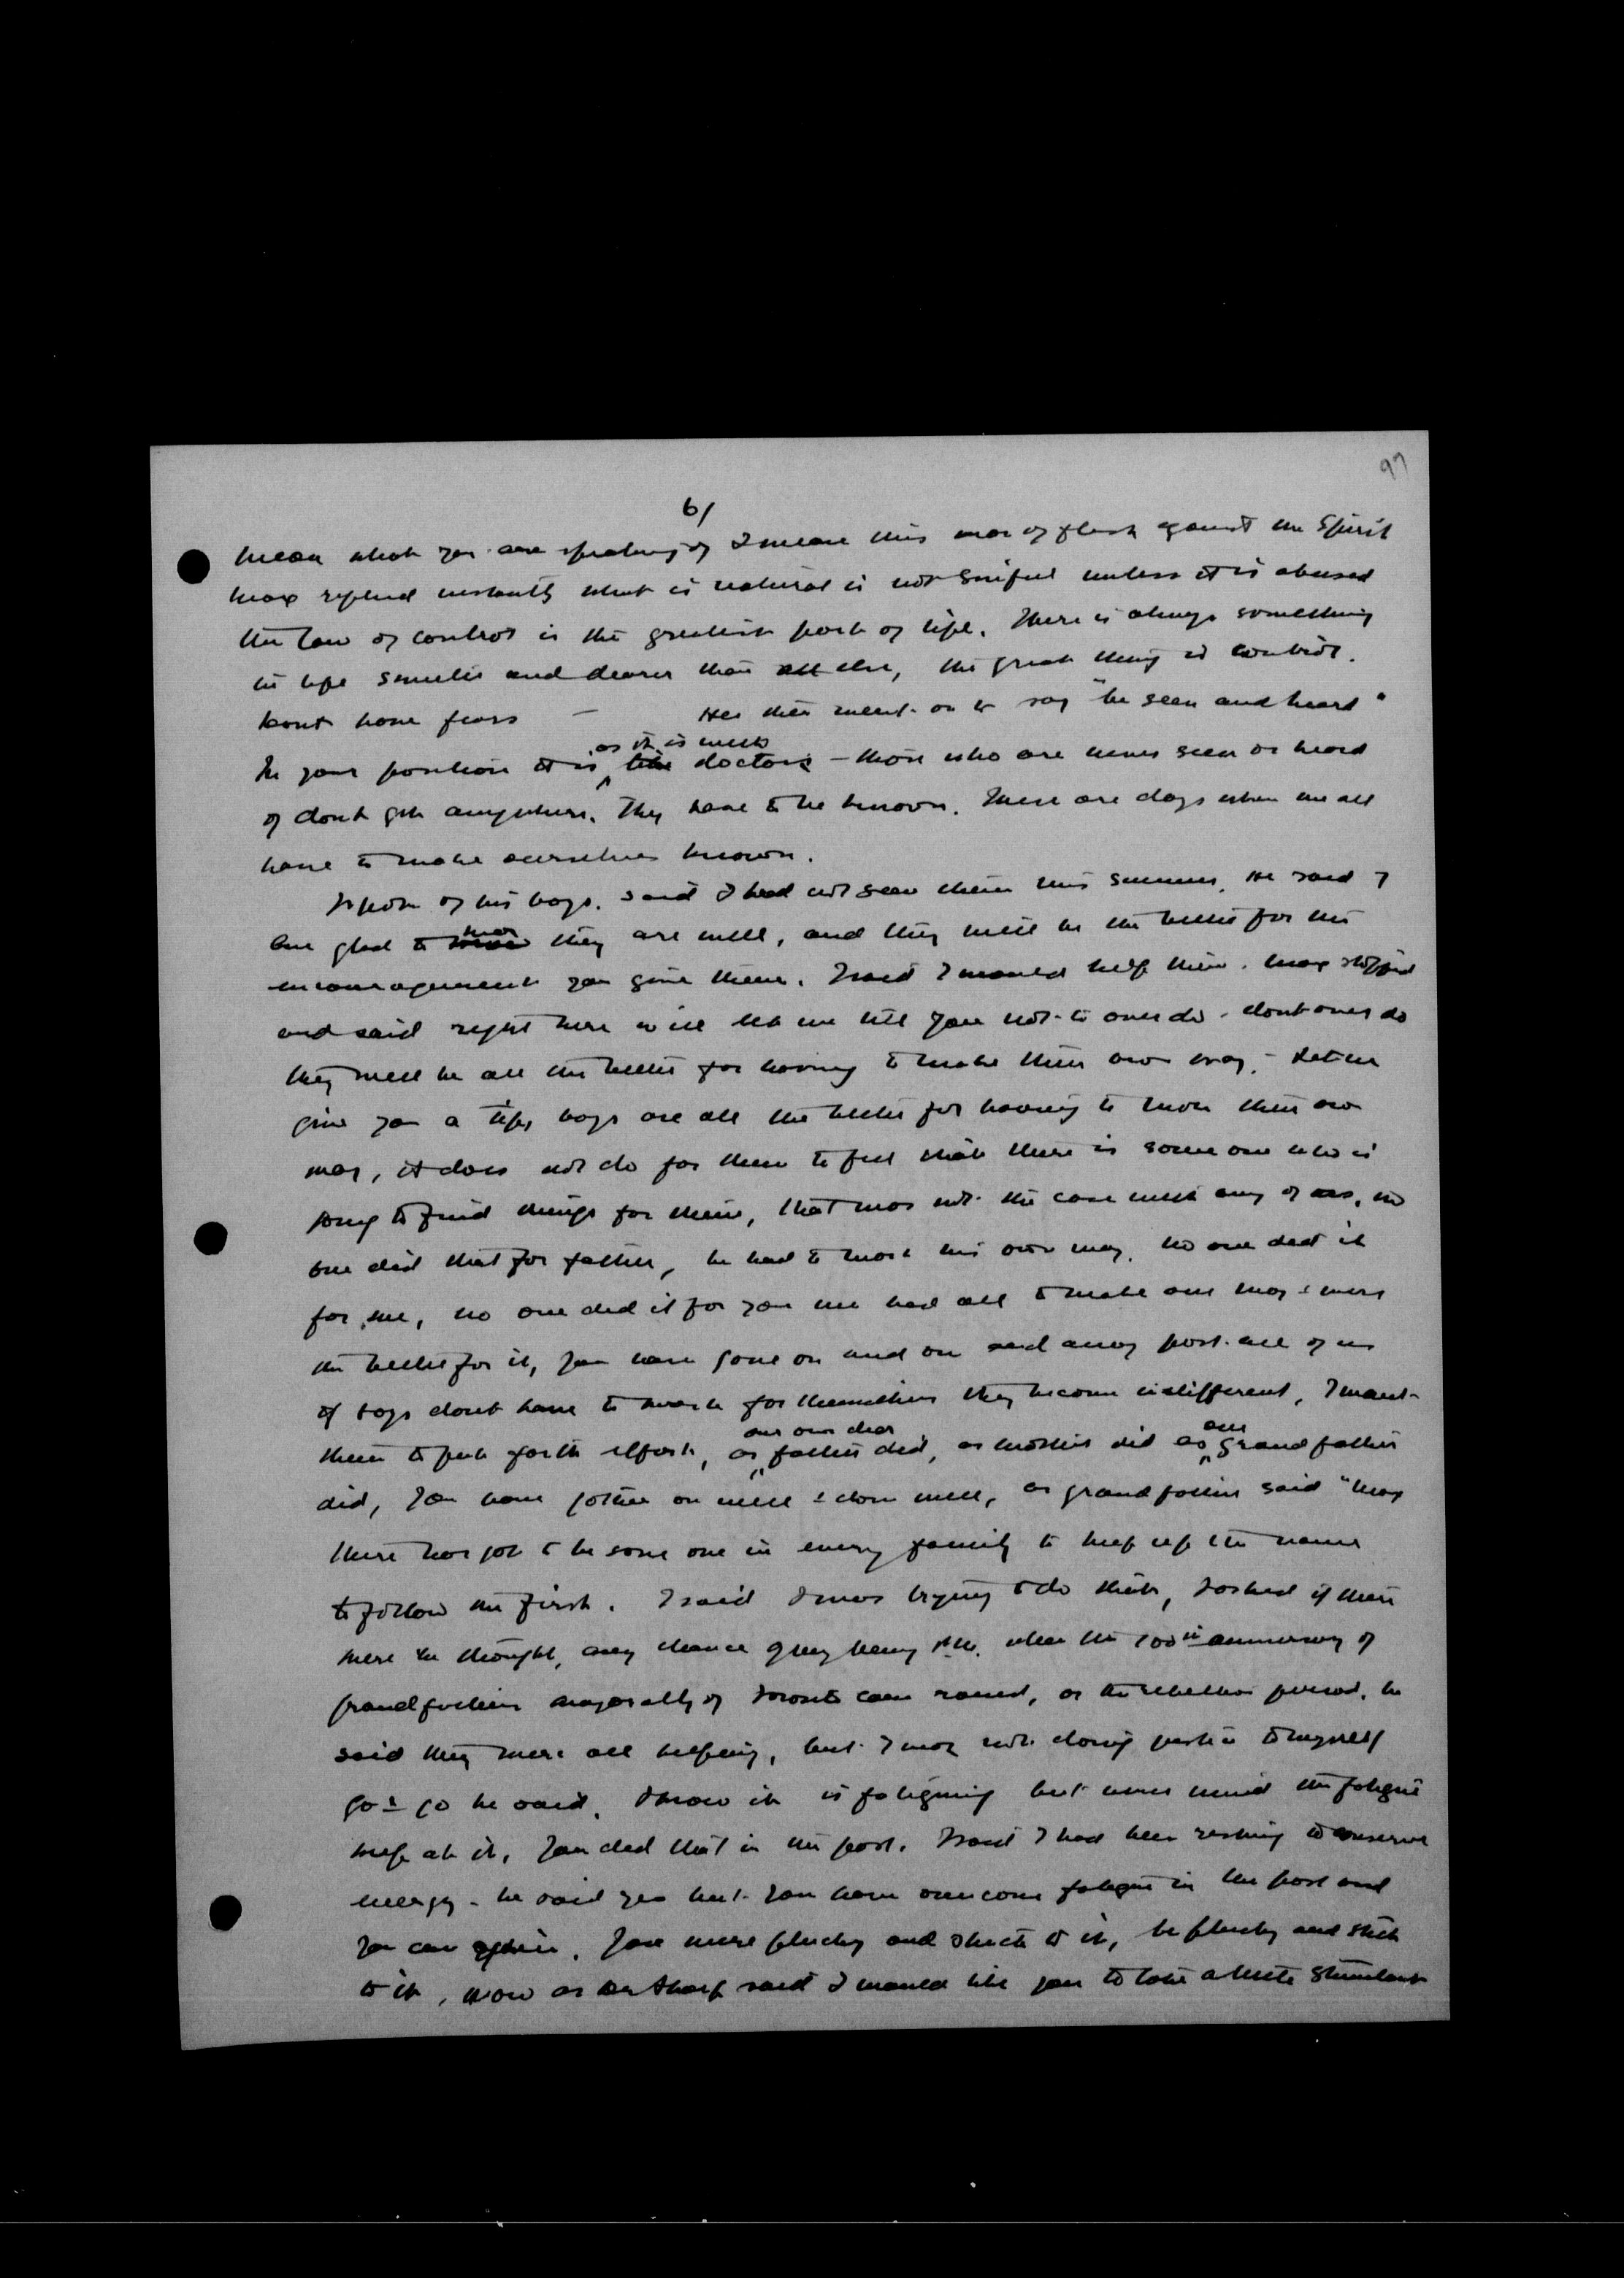 97
6/
mean what you are speaking of I mean this war of flesh against the Spirit
Max replied instantly what is natural is not sinful unless it is abused
the law of control is the greatest part of life. There is always something
in life sweeter and dearer than all else, the great thing is control.
Dont have fears — He then went on to say "be seen and heard"
as it is with
In your position it is like doctors - those who are never seen or heard
of dont get anywhere. They have to be known. These are days when we all
have to make ourselves known.
Spoke of his boys. said I had not seen them this summer. He said I
hear
am glad to they are well, and they will be the better for the
encouragement you give them. I said I would help them. Max stopped
and said right here will let me tell you not to over do - dont over do
they will be all the better for having to make their own way. - Let me
give you a tip, boys are all the better for having to their own
way, it does not do for them to feel that there is some one who is
going to find things for them, that was not the case with any of us, no
one did that for father, he had to work his own way. No one did it
for me, no one did it for you we had all to make our way & were
the better for it, you have gone on and on and away past all of us
if boys dont have to work for themselves they become indifferent, I want
our own dear
our
them to put forth effort, as father did, as mother did as grandfather
did, You have gotten on well & done well, as grandfather said "Max
there has got to be some one in every family to keep up the name
to follow the first. I said I was trying to do that, I asked if there
were he thought, any chance of my being when the 100th anniversary of
grandfathers mayoralty of Toronto came round, or the rebellion period. he
said they were all helping, but I was not doing justice to myself
go & go he said. I know it is fatiguing but never mind the fatigue
keep at it, You did that in the past. I said I had been resting to conserve
energy - he said yes but you have overcome fatigue in the past and
you can again. You were plucky and stuck to it, be plucky and stick
to it, Now as Dr Sharp said I would like you to take a little stimulant